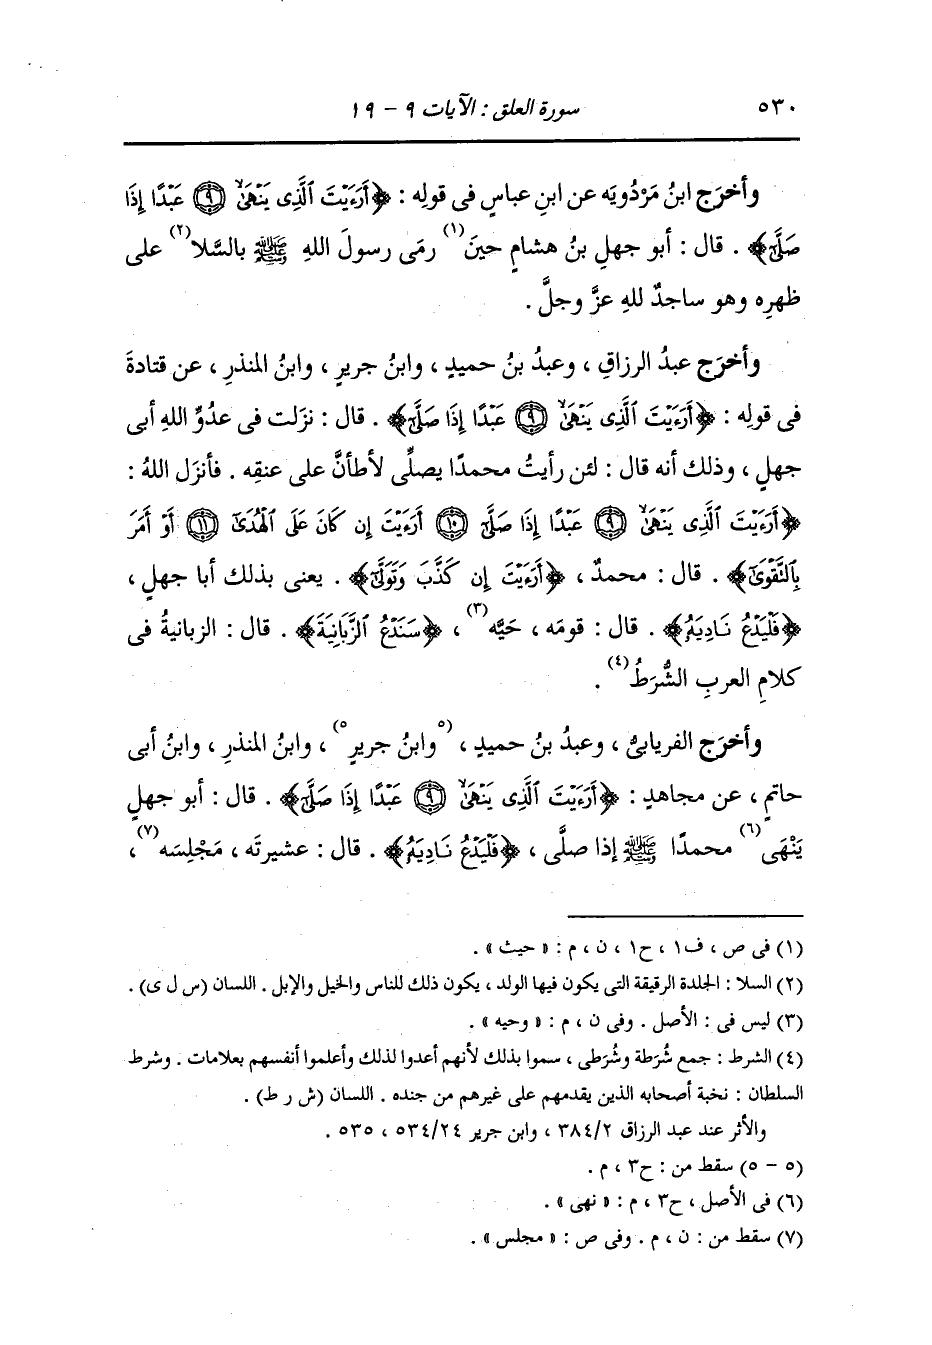 ٥٣٠ سورة العلق : الآيات ٩ - ١٩
وأخرَج ابنُ مَرْدُويَه عن ابنِ عباسٍ فى قولِه : ﴿أَرَءَيْتَ ٱلَّذِى يَنْهَىٰ ۝٩ عَبْدًا إِذَا
صَلَّىٰٓ﴾ . قال : أبو جهلِ بنُ هشامٍ حينَ(١) رمَى رسولَ اللهِ ﷺ بالسَّلا(٢) على
ظهرِه وهو ساجدٌ للهِ عزَّ وجلَّ .
وأخرَج عبدُ الرزاقِ ، وعبدُ بنُ حميدٍ ، وابنُ جريرٍ ، وابنُ المنذرِ ، عن قتادةَ
فى قولِه : ﴿أَرَءَيْتَ ٱلَّذِى يَنْهَىٰ ۝٩ عَبْدًا إِذَا صَلَّىٰٓ﴾ . قال : نزَلت فى عدُوِّ اللهِ أبى
جهلٍ ، وذلك أنه قال : لئن رأيتُ محمدًا يصلِّى لأطأنَّ على عنقِه . فأنزَل اللهُ :
﴿أَرَءَيْتَ ٱلَّذِى يَنْهَىٰ ۝٩ عَبْدًا إِذَا صَلَّىٰٓ ۝١٠ أَرَءَيْتَ إِن كَانَ عَلَى ٱلْهُدَىٰٓ ۝١١ أَوْ أَمَرَ
بِٱلتَّقْوَىٰٓ﴾ . قال : محمدٌ ، ﴿أَرَءَيْتَ إِن كَذَّبَ وَتَوَلَّىٰٓ﴾ . يعنى بذلك أبا جهلٍ ،
﴿فَلْيَدْعُ نَادِيَهُۥ﴾ . قال : قومَه ، حَيَّه(٣) ، ﴿سَنَدْعُ ٱلزَّبَانِيَةَ﴾ . قال : الزبانيةُ فى
كلامِ العربِ الشُّرَطُ(٤) .
وأخرَج الفريابىُّ ، وعبدُ بنُ حميدٍ ، (٥وابنُ جريرٍ٥) ، وابنُ المنذرِ ، وابنُ أبى
حاتمٍ ، عن مجاهدٍ : ﴿أَرَءَيْتَ ٱلَّذِى يَنْهَىٰ ۝٩ عَبْدًا إِذَا صَلَّىٰٓ﴾ . قال : أبو جهلٍ
يَنْهَى(٦) محمدًا ﷺ إذا صلَّى ، ﴿فَلْيَدْعُ نَادِيَهُۥ﴾ . قال : عشيرتَه ، مَجْلِسَه(٧) ،
(١) فى ص ، ف١ ، ح١ ، ن ، م : « حيث » .
(٢) السلا : الجلدة الرقيقة التى يكون فيها الولد ، يكون ذلك للناس والخيل والإبل . اللسان (س ل ى) .
(٣) ليس فى : الأصل . وفى ن ، م : « وحيه » .
(٤) الشرط : جمع شُرَطة وشُرَطى ، سموا بذلك لأنهم أعدوا لذلك وأعلموا أنفسهم بعلامات . وشرط
السلطان : نخبة أصحابه الذين يقدمهم على غيرهم من جنده . اللسان (ش ر ط) .
والأثر عند عبد الرزاق ٣٨٤/٢ ، وابن جرير ٥٣٤/٢٤ ، ٥٣٥ .
(٥ - ٥) سقط من : ح٣ ، م .
(٦) فى الأصل ، ح٣ ، م : « نهى » .
(٧) سقط من : ن ، م . وفى ص : « مجلس » .